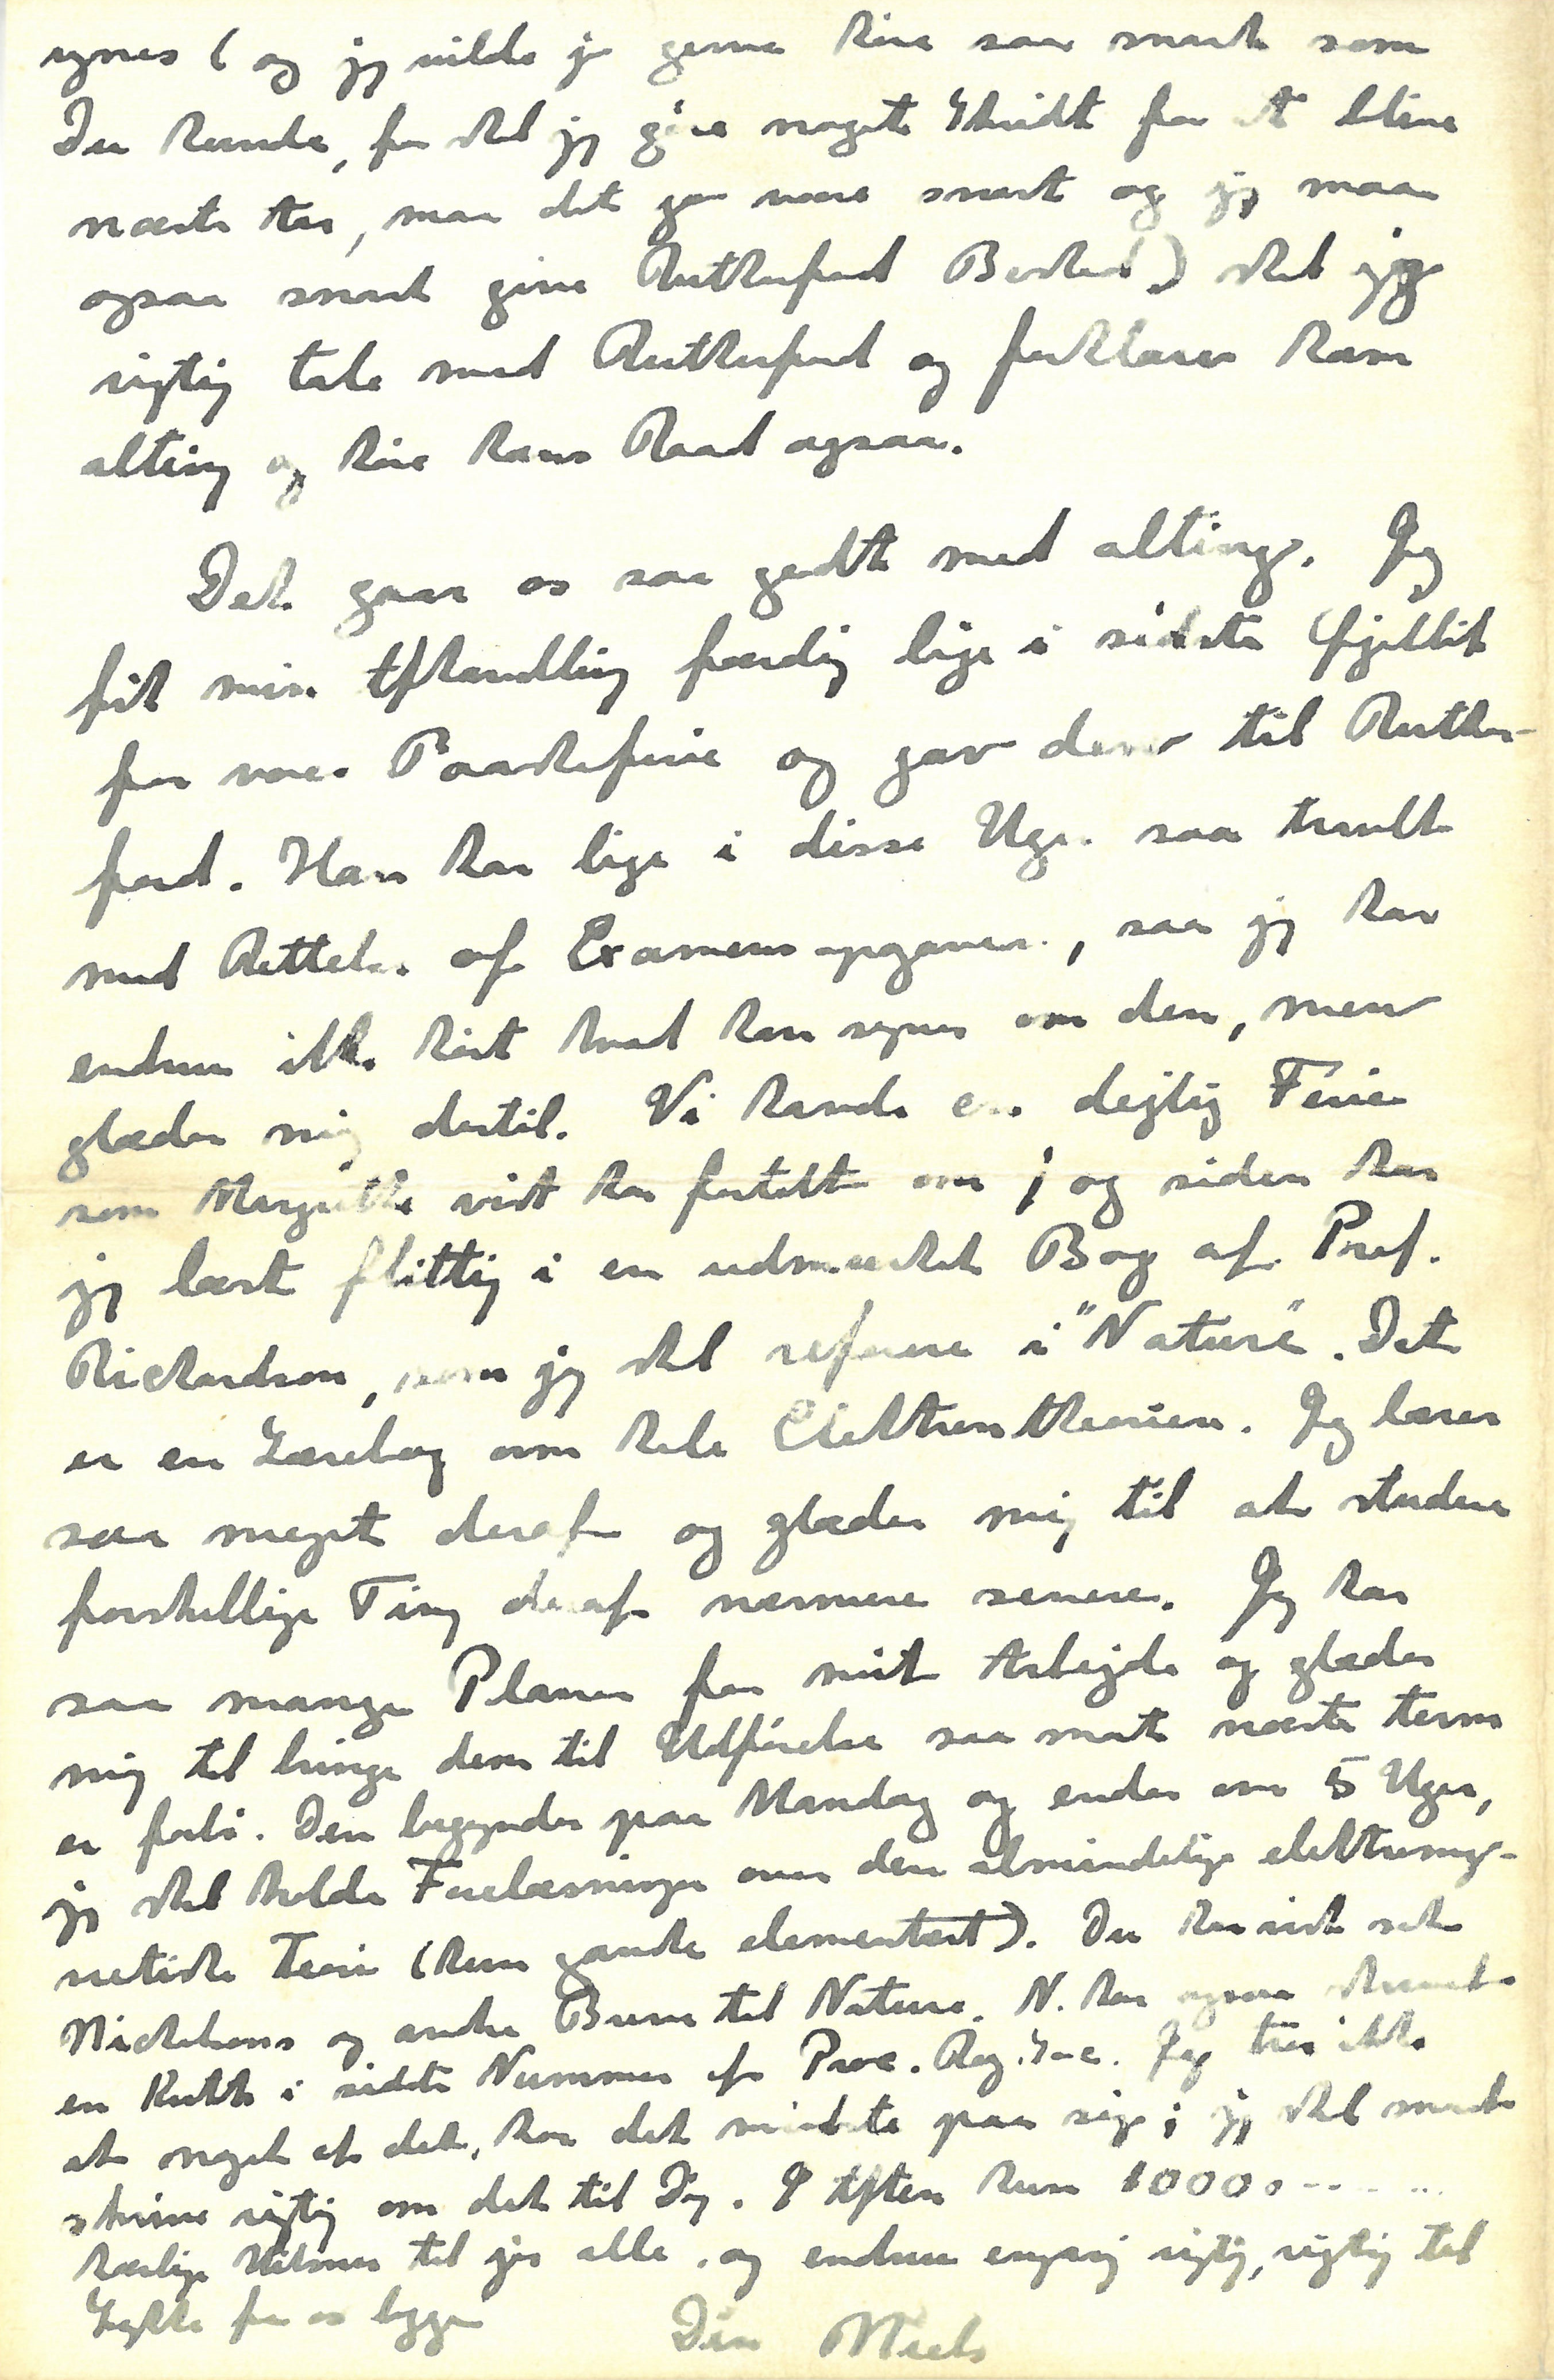 synes (og jeg vilde jo gerne høre saa snart som
Du kunde, for skal jeg gøre noget Skridt for at blive
næste Aar, maa det jo være snart og jeg maa
ogsaa snart give Rutherford Besked) skal jeg
rigtig tale med Rutherford og forklare ham
alting og høre hans Raad ogsaa.
Det gaar os saa godt med alting. Jeg
fik min Afhandling færdig lige i sidste Øjeblik
før vores Paaskeferie og gav den til Ruther-
ford. Han har lige i disse Uger saa travlt
med Rettelse af Examensopgaver, saa jeg har
endnu ikke hørt hvad han synes om den, men
glæder mig dertil. Vi havde en dejlig Ferie
som Margrethe vist har fortalt om; og siden har
jeg læst flittig i en udmærket Bog af Prof.
Richardson, som jeg skal referere i "Nature". Det
er en Lærebog om hele Elektrontheorien. Jeg lærer
saa meget deraf og glæder mig til at studere
forskellige Ting deraf nærmere senere. Jeg har
saa mange Planer for mit Arbejde og glæder
mig til bringe dem til Udførelse saa snart næste term
er forbi. Den begynder paa Mandag og ender om 5 Uger,
jeg skal holde Forelæsninger over den almindelige elektromag-
netiske Teori (kun ganske elementært). Du har vist set
Nicholsons og andre Breve til Nature. N. har ogsaa skrevet
en Kritik i sidste Nummer af Proc. Roy. Soc. Jeg tror ikke
at noget af det, har det mindste paa sig; jeg skal snart
skrive rigtig om det til Dig. I Aften kun 1000 . . . . . .
kærlige Hilsner til jer alle, og endnu engang rigtig, rigtig til
Lykke fra os begge
Din Niels